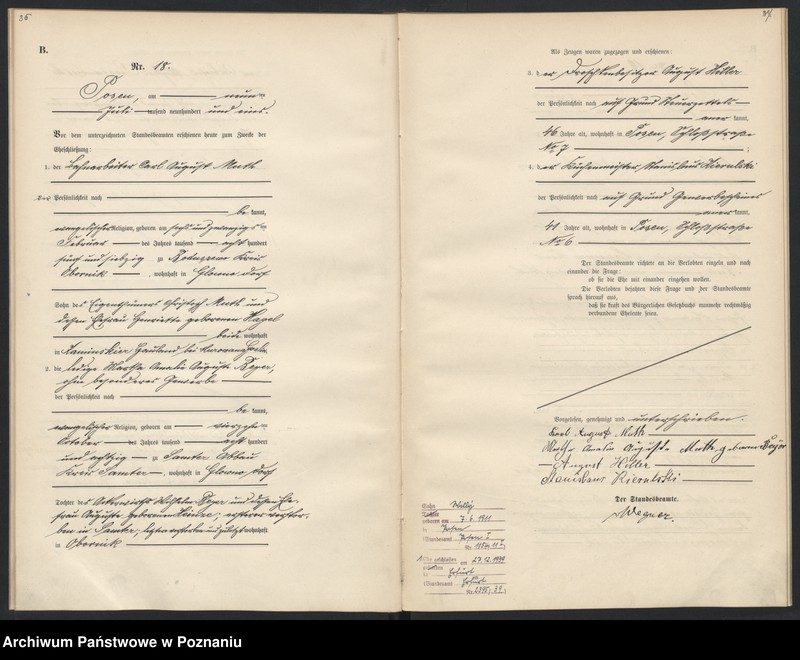 36
B.
Nr. 18.
Posen, am neun
Juli tausend neunhundert und eins.
Vor dem unterzeichneten Standesbeamten erschienen heute zum Zwecke der
Eheschließung:
1. der Bahnarbeiter Carl August Muth
der Persönlichkeit nach
be kannt,
evangelischer Religion, geboren am sechs und zwanzigsten
Februar des Jahres tausend acht hundert
fünf und siebzig zu Kreis
Obornik, wohnhaft in Glowno Dorf
Sohn des Eigenthümers Christoph Muth und
dessen Ehefrau Henriette geborenen Hagel
beide wohnhaft
in Kaminskier Hauland bei
2. die ledige Martha Amalie Auguste Beyer,
ohne besonderes Gewerbe
der Persönlichkeit nach
be kannt,
evangelischer Religion, geboren am vierzehn
October des Jahres tausend acht hundert
und achtzig zu Samter Abbau
Kreis Samter, wohnhaft in Glowno, Dorf
Tochter des Ackerwirths Wilhelm Beyer und dessen Ehe-
frau Auguste geborenen ersterer verstor-
ben in Samter, letztere wohnhaft
in Obornik
37
Als Zeugen waren zugezogen und erschienen:
3. der Droschkenbesitzer August Hiller
der Persönlichkeit nach auf Grund Steuerzettels
aner kannt,
46 Jahre alt, wohnhaft in Posen, Schloßstraße
No 7;
4. der Küchenmeister Stanislaus Kieralski
der Persönlichkeit nach auf Grund Gewerbescheines
aner kannt,
41 Jahre alt, wohnhaft in Posen, Schloßstraße
No 6
Der Standesbeamte richtete an die Verlobten einzeln und nach
einander die Frage:
ob sie die Ehe mit einander eingehen wollen.
Die Verlobten bejahten diese Frage und der Standesbeamte
sprach hierauf aus,
daß sie kraft des Bürgerlichen Gesetzbuchs nunmehr rechtmäßig
verbundene Eheleute seien.
Vorgelesen, genehmigt und unterschrieben.
Carl August Muth
Martha Amalie Auguste Muth geborene Beyer
August Hiller
Stanislaus Kieralski
Der Standesbeamte.
Wegner.
Sohn Willy
geboren am 7.6.1911
in Posen
Standesamt Posen
Nr.
Ehe geschlossen am 27.12.1939
in Erfurt
Standesamt Erfurt
Nr.
Archiwum Państwowe w Poznaniu